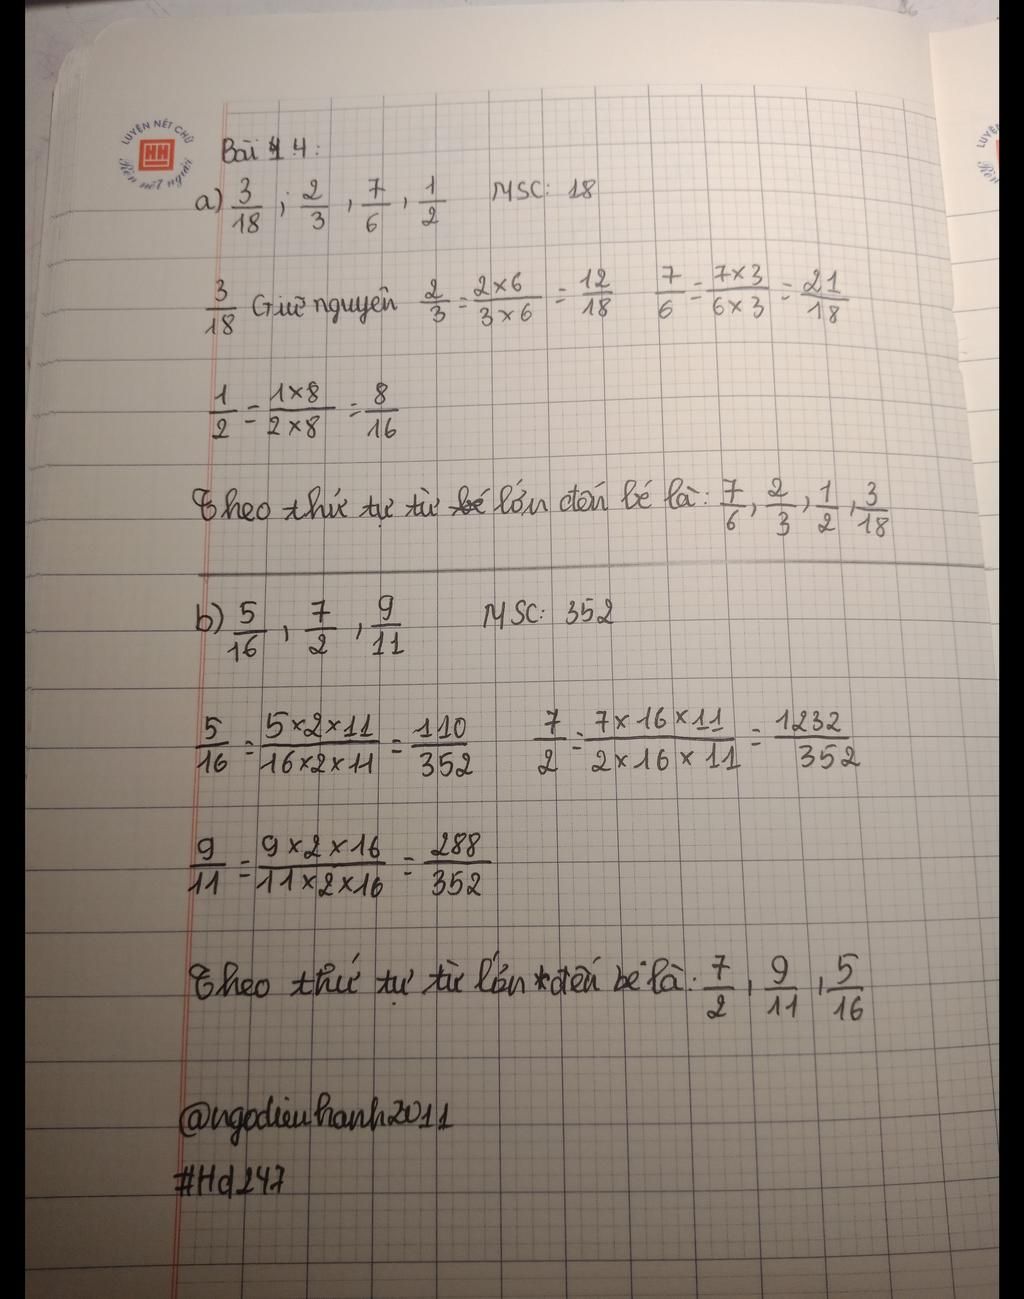 LUYỆN NÉT CHỮ
HH
Rèn nết người
Bài 14:
a) 3/18 ; 2/3 , 7/6 , 1/2 MSC: 18
3/18 Giữ nguyên 2/3 = 2×6/3×6 = 12/18 7/6 = 7×3/6×3 = 21/18
1/2 = 1×8/2×8 = 8/16
Theo thứ tự từ bé lớn đến bé là: 7/6 , 2/3 , 1/2 , 3/18
b) 5/16 , 7/2 , 9/11 MSC: 352
5/16 = 5×2×11/16×2×11 = 110/352 7/2 = 7×16×11/2×16×11 = 1232/352
9/11 = 9×2×16/11×2×16 = 288/352
Theo thứ tự từ lớn đến bé là: 7/2 , 9/11 , 5/16
@ngodieuhanh2011
#Hd247